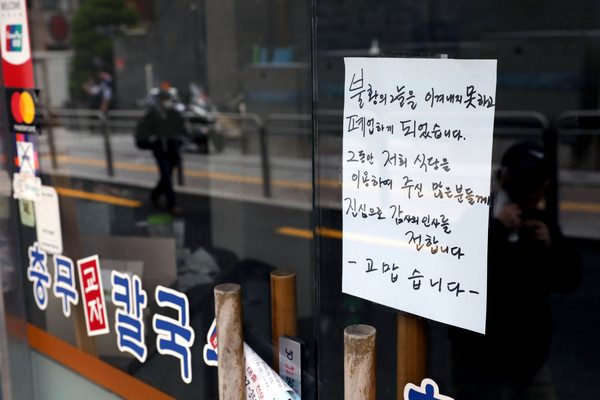 WELCOME
불황의 그늘을 이겨내지 못하고
폐업하게 되었습니다.
그동안 저희 식당을
이용하여 주신 많은분들께
진심으로 감사의 인사를
전합니다
- 고맙습니다 -
충무
교자
칼국